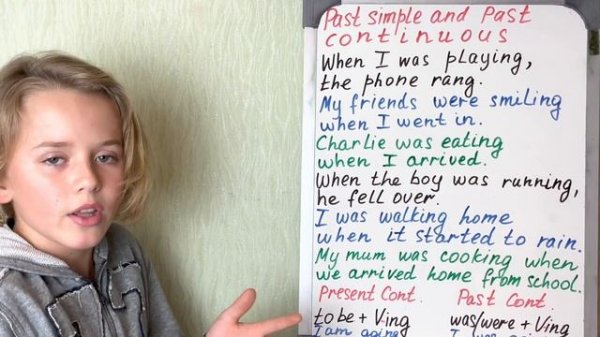 Past simple and Past
continuous
When I was playing,
the phone rang.
My friends were smiling
when I went in.
Charlie was eating
when I arrived.
When the boy was running,
he fell over.
I was walking home
when it started to rain.
My mum was cooking when
we arrived home from school.
Present Cont. Past Cont.
to be + Ving was/were + Ving
I am going I was going